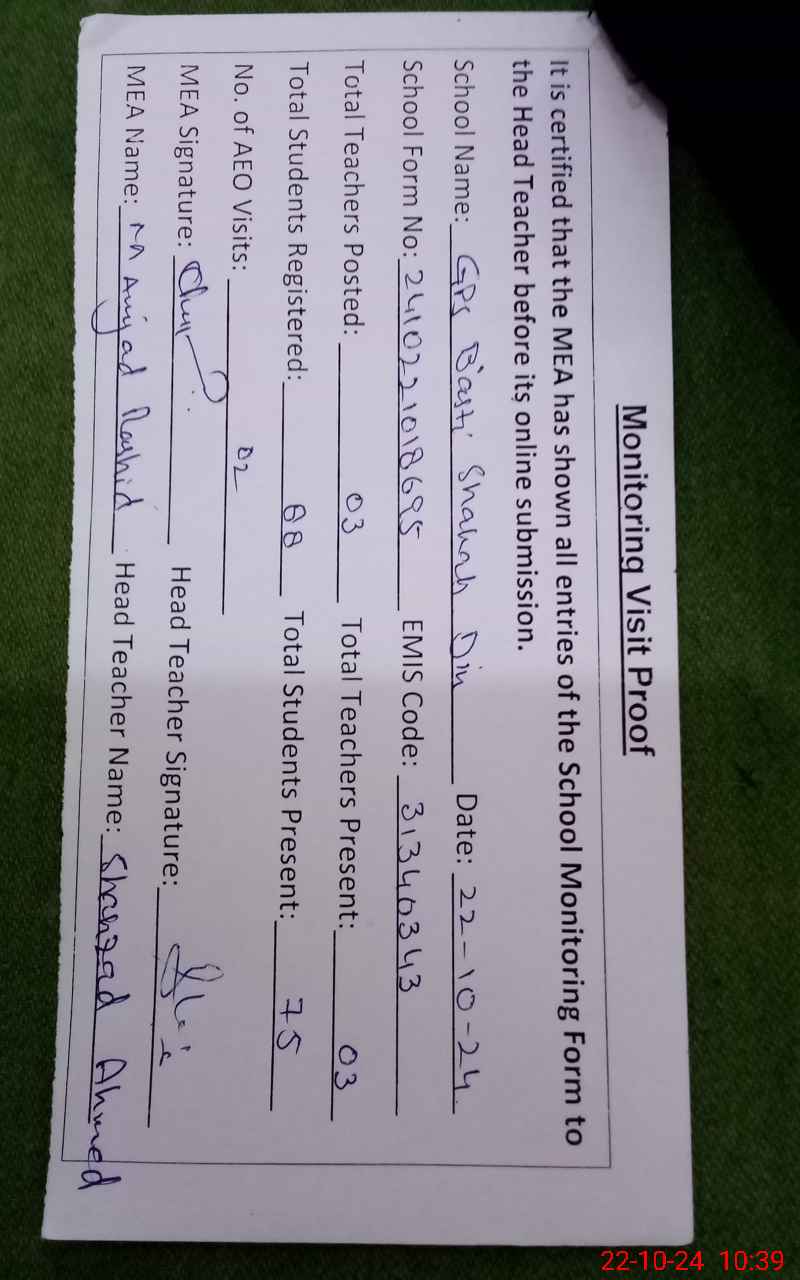 Monitoring Visit Proof
It is certified that the MEA has shown all entries of the School Monitoring Form to
the Head Teacher before its online submission.
School Name: GPS Basti Shanah Din Date: 22-10-24
School Form No: 2410221018695 EMIS Code: 31340343
Total Teachers Posted: 03 Total Teachers Present: 03
Total Students Registered: 88 Total Students Present: 75
No. of AEO Visits: 02
MEA Signature: Head Teacher Signature:
MEA Name: M Amjad Rashid Head Teacher Name: Shahzad Ahmed
22-10-24 10:39